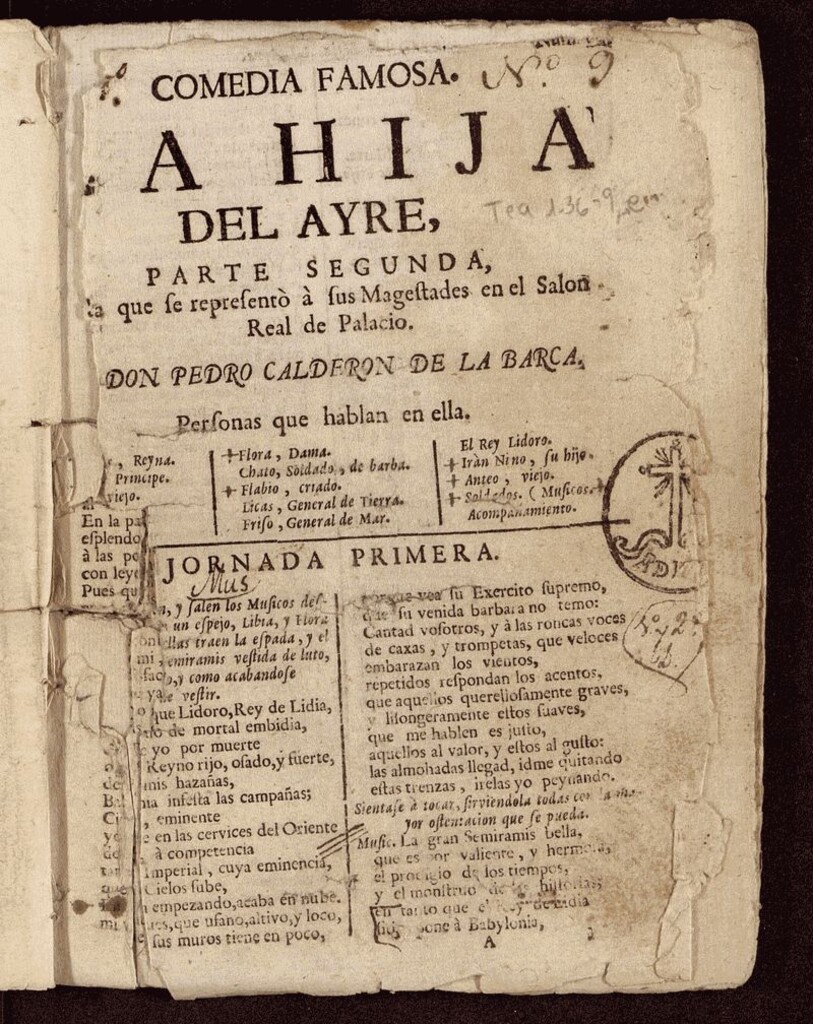 COMEDIA FAMOSA. Nº 9
A HIJA
DEL AYRE,
Tea 1-36-9,
PARTE SEGUNDA,
que ſe repreſentò à ſus Mageſtades en el Salon
Real de Palacio.
DON PEDRO CALDERON DE LA BARCA.
Perſonas que hablan en ella.
, Reyna.
Principe.
viejo.
Flora, Dama.
Chato, Soldado, de barba.
Flabio, criado.
Licas, General de Tierra.
Friſo, General de Mar.
El Rey Lidoro.
Iràn Nino, ſu hijo.
Anteo, viejo.
Soldados. ( Muſicos.
Acompañamiento.
En la
eſplendo
à las
con
Pues
JORNADA PRIMERA.
Mus
, y ſalen los Muſicos
un eſpejo, Libia, y Flora
traen la eſpada, y el
emiramis veſtida de luto,
, y como acabandoſe
veſtir.
que Lidoro, Rey de Lidia,
de mortal embidia,
yo por muerte
Reyno rijo, oſado, y fuerte,
mis hazañas,
infeſta las campañas;
, eminente
en las cervices del Oriente
à competencia
Imperial, cuya eminencia,
Cielos ſube,
empezando, acaba en nube.
, que ufano, altivo, y loco,
ſus muros tiene en poco,
porque vea ſu Exercito ſupremo,
que ſu venida barbara no temo:
Cantad voſotros, y à las roncas voces
de caxas, y trompetas, que veloces
embarazan los vientos,
repetidos reſpondan los acentos,
que aquellos querelloſamente graves,
y liſongeramente eſtos ſuaves,
que me hablen es juſto,
aquellos al valor, y eſtos al guſto:
las almohadas llegad, idme quitando
eſtas trenzas, irelas yo peynando.
Sientaſe à tocar, ſirviendola todas con la ma-
yor oſtentacion que ſe pueda.
Muſic. La gran Semiramis bella,
que es por valiente, y hermoſa,
el prodigio de los tiempos,
y el monſtruo de las hiſtorias;
en tanto que el Rey de Lidia
ſitio pone à Babylonia,
A